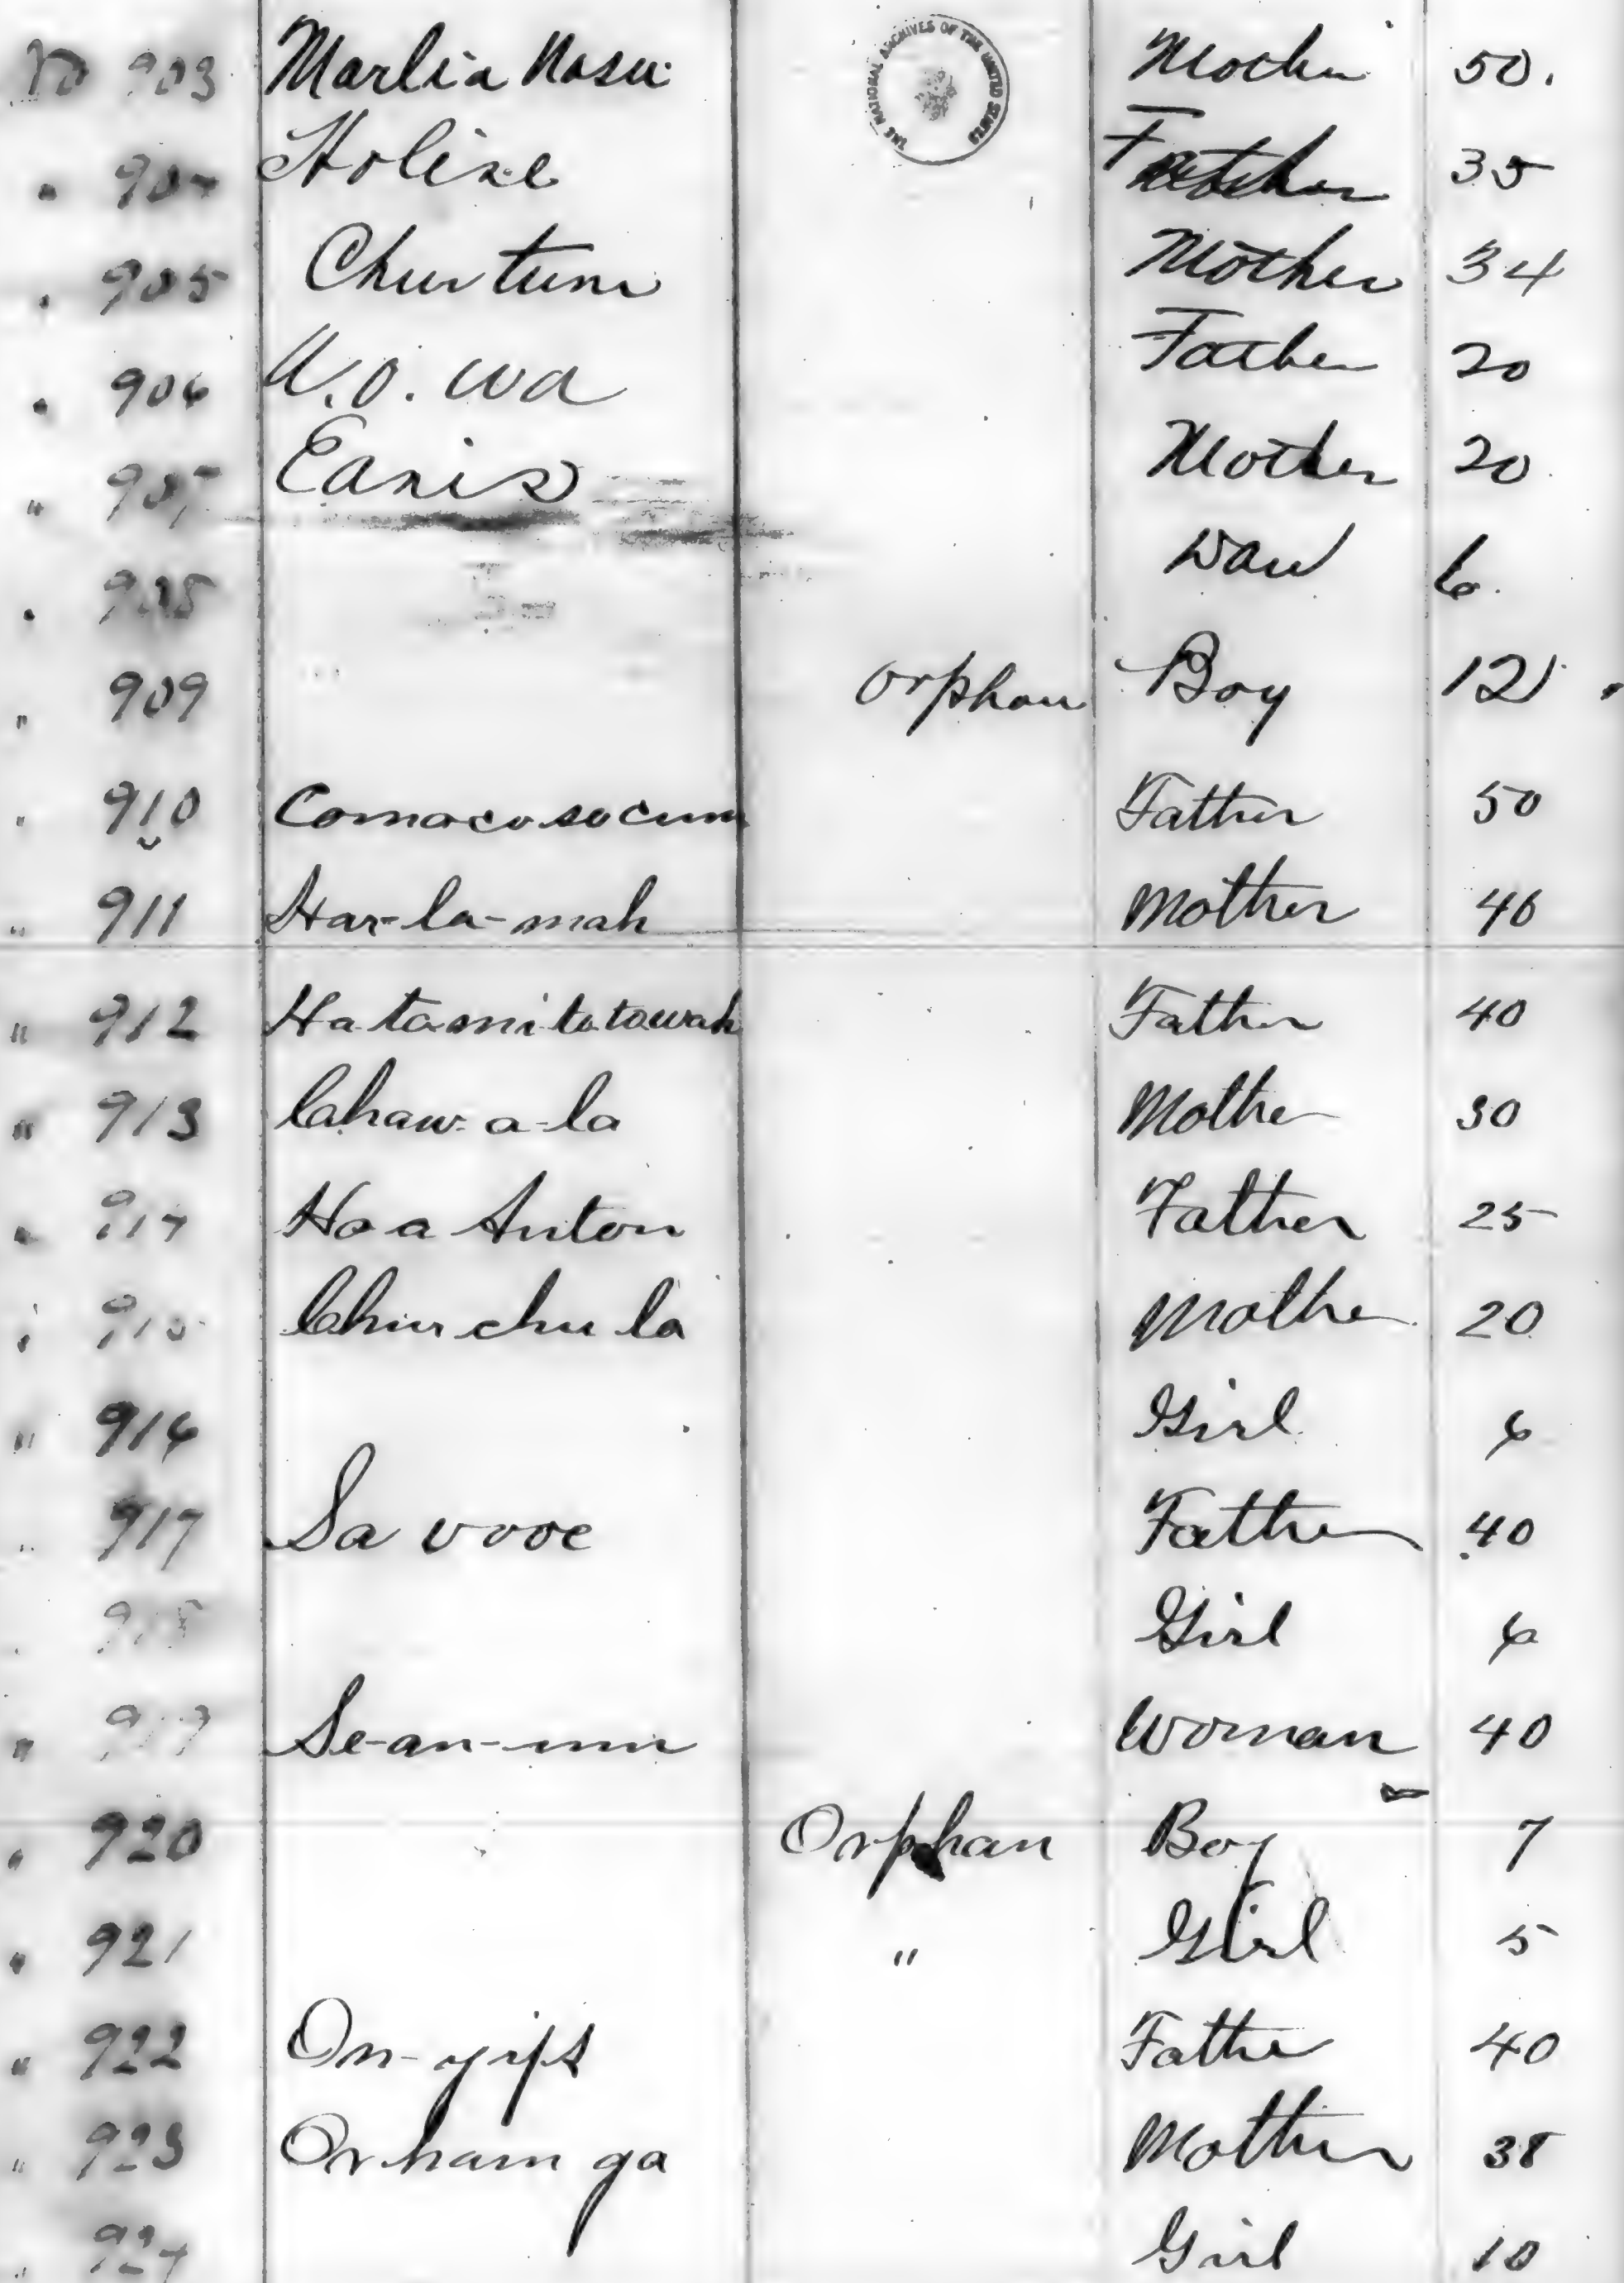 No 903 Marlia Nasu Mother 50.
THE NATIONAL ARCHIVES OF THE UNITED STATES
" 904 Holize Father 35
" 905 Chur tum Mother 34
" 906 U.O. wa Father 20
" 907 Eanis Mother 20
" 908 Dau 6
" 909 Orphan Boy 12
" 910 Comacosocum Father 50
" 911 Har-la-mah Mother 40
" 912 Ha tami ta towah Father 40
" 913 Chaw-a-la Mother 30
" 914 Hoa Anton Father 25
" 915 Chur chu la Mother 20
" 916 Girl 6
" 917 Sa vooe Father 40
" 918 Girl 6
" 919 Se-an-mu Woman 40
" 920 Orphan Boy 7
" 921 " Girl 5
" 922 On-gips Father 40
" 923 Or ham ga Mother 38
" 924 Girl 10